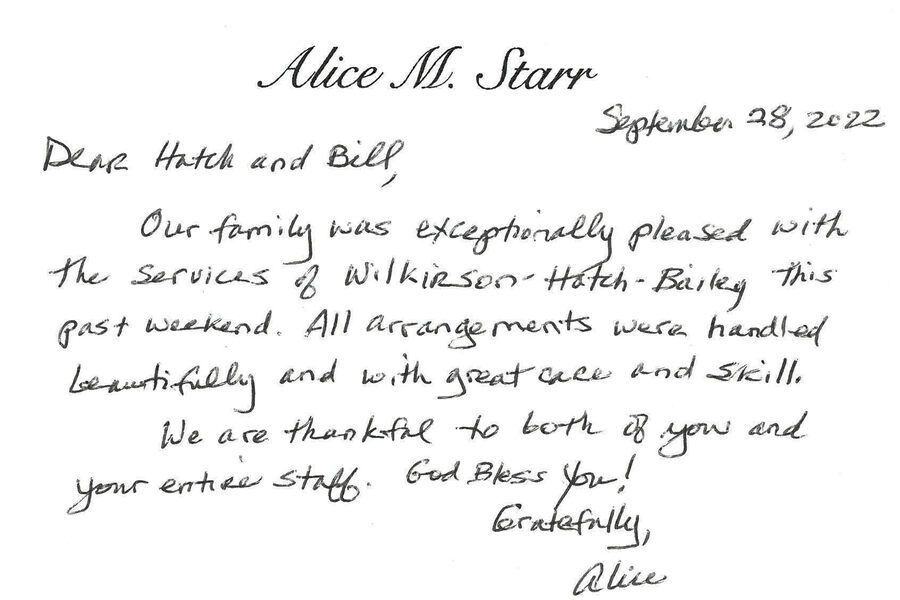 Alice M. Starr
September 28, 2022
Dear Hatch and Bill,
Our family was exceptionally pleased with
the services of Wilkirson-Hatch-Bailey this
past weekend. All arrangements were handled
beautifully and with great care and skill.
We are thankful to both of you and
your entire staff. God Bless You!
Gratefully,
Alice